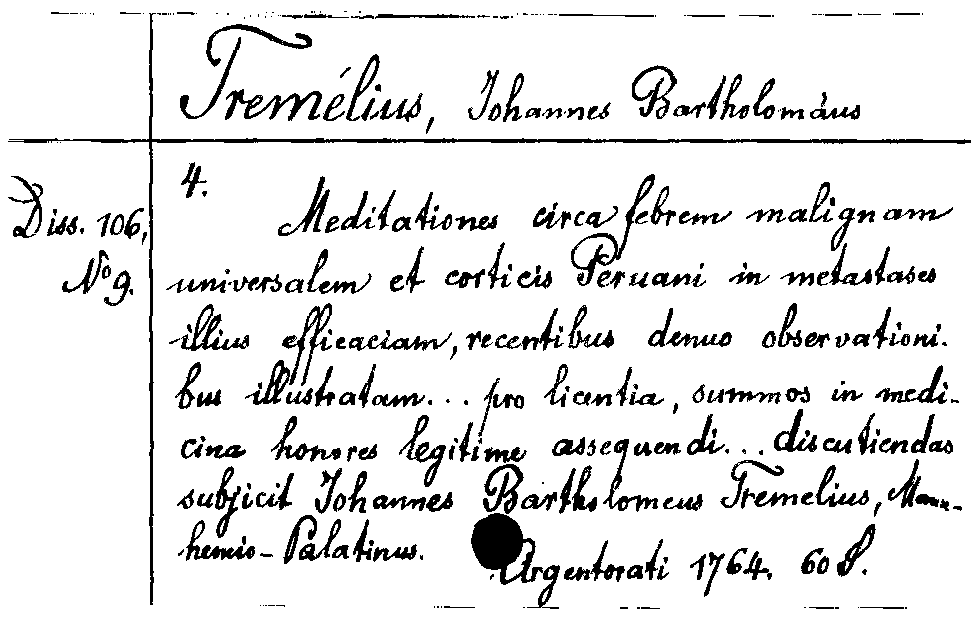 Tremélius, Johannes Bartholomäus
4.
Diss. 106,
No 9.
Meditationes circa febrem malignam
universalem et corticis Peruani in metastases
illius efficaciam, recentibus denuo observationi-
bus illustratam... pro licentia, summos in medi-
cina honores legitime assequendi... discutiendas
subjicit Johannes Bartholomeus Tremelius, Mann-
hemio-Palatinus.
Argentorati 1764. 60 S.